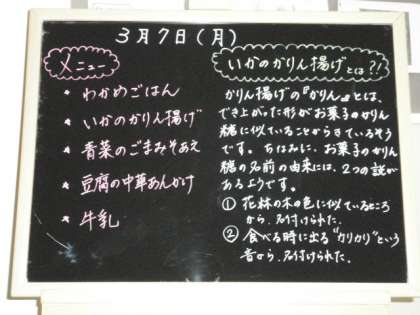 3月7日(月)
メニュー
* わかめごはん
* いかのかりん揚げ
* 青菜のごまみそあえ
* 豆腐の中華あんかけ
* 牛乳
いかのかりん揚げとは?!
かりん揚げの『かりん』とは、
でき上がった形がお菓子のかりん
糖に似ていることからきているそう
です。ちなみに、お菓子のかりん
糖の名前の由来には、2つの説が
あるようです。
① 花林の木の色に似ているところ
から、名付けられた。
② 食べる時に出る"カリカリ"という
音から、名付けられた.